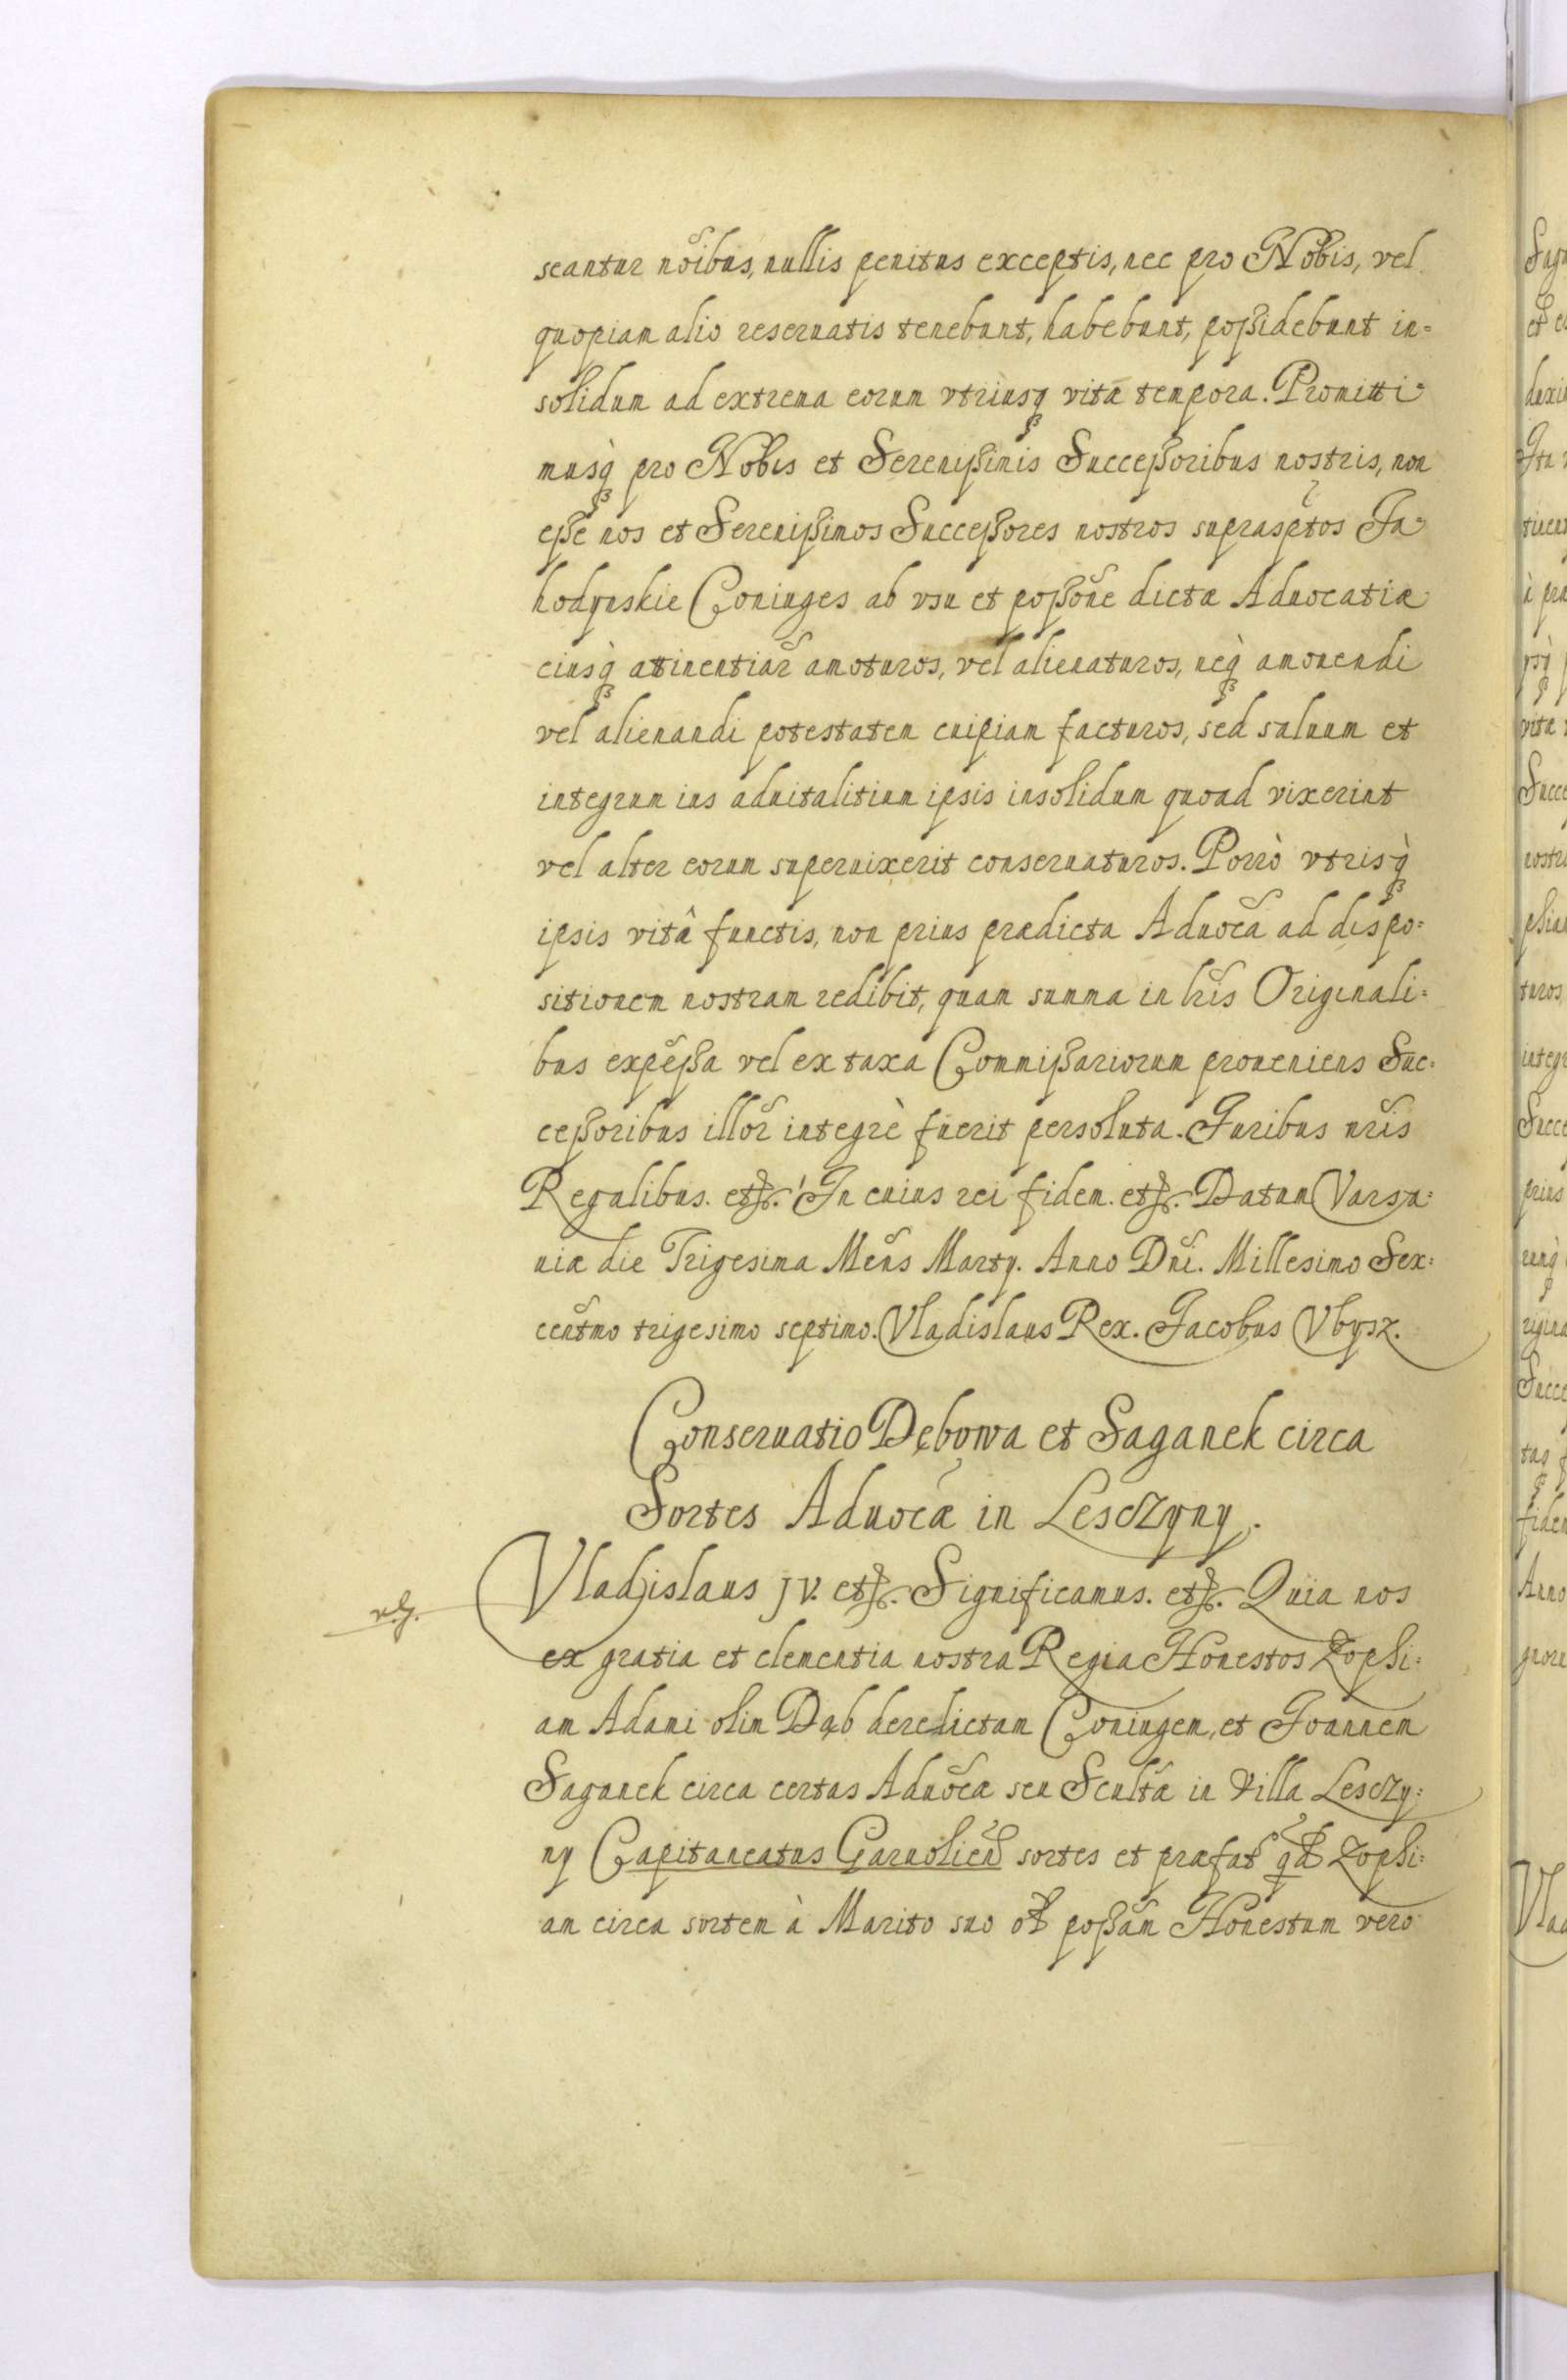 seantur nõibus, nullis penitus exceptis, nec pro Nobis, vel
quopiam alio reseruatis tenebunt, habebunt, poßidebunt in=
solidum ad extrema eorum vtriusq vitæ tempora. Promitti
musq̀ pro Nobis et Serenißimis Succeßoribus nostris, non
eße nos et Serenißimos Succeßores nostros suprasptos Ja
hodynskie Coniuges ab vsu et poßõne dictæ Aduocatiæ
eiusq̀ attinentiar̃ amoturos, vel alienaturos, neq̀ amouendi
vel alienandi potestatem cuipiam facturos, sed saluum et
integrum ius aduitalitium ipsis insolidum quoad vixerint
vel alter eorum superuixerit conseruaturos. Porrò vtrisq̀
ipsis vitâ functis, non prius prædicta Aduocã ad dispo=
sitionem nostram redibit, quam summa in lr̃is Originali=
bus exp̃eßa vel ex taxa Commißariorum proueniens Suc=
ceßoribus illor̃ integrè fuerit persoluta. Juribus nr̃is
Regalibus. etc. In cuius rei fidem. etc. Datum Varsa=
uiæ die Trigesima Mens̃ Marty. Anno Dñi. Millesimo Sex=
centm̃o trigesimo septimo. Vladislaus Rex. Jacobus Vbysz.
Conseruatio Dębowa et Saganek circa
Sortes Aduocæ in Lesczyny.
v.g.
Vladislaus jv. etc. Significamus. etc. Quia nos
ex gratia et clementia nostra Regia Honestos Zophi=
am Adami olim Dąb derelictam Coniugem, et Joannem
Saganek circa certas Aduocæ seu Scultæ in Villa Lesczy=
ny Capitaneatus Garuolien̄ sortes et præfat̃ qd Zophi=
am circa sortem à Marito suo ol̃ poßãm Honestum vero